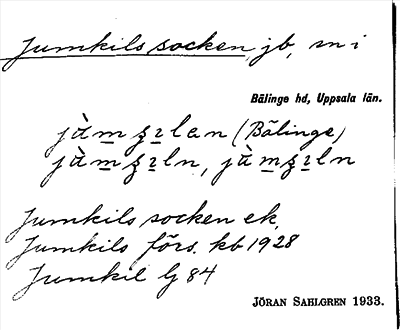 Jumkils socken, jb, sn i
Bälinge hd, Uppsala län.
(Bälinge)
Jumkils socken ek.
Jumkils förs. kb 1928
Jumkil lj 84
JÖRAN SAHLGREN 1933.